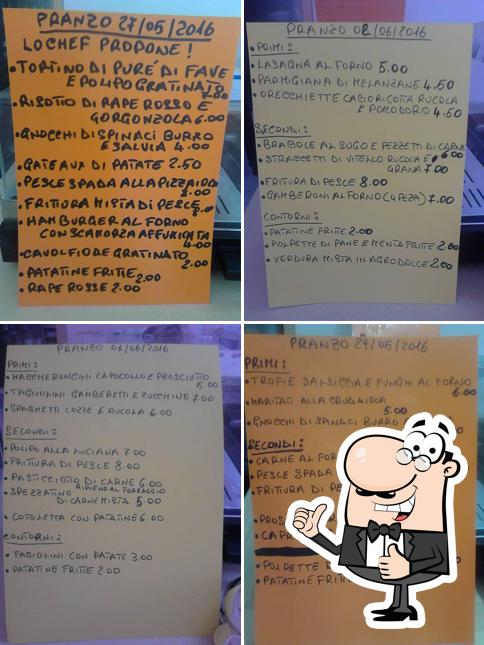 PRANZO 27/05/2016
LO CHEF PROPONE!
• TORTINO DI PURE' DI FAVE
E POLIPO GRATINATI 8.
7.00
• RISOTTO DI RAPE ROSSO E
GORGONZOLA 6.00
• GNOCCHI DI SPINACI BURRO
E SALVIA 4.00
• GATEAUX DI PATATE 2.50
• PESCE SPADA ALLA PIZZAIOLA
8.00
• FRITTURA MISTA DI PESCE
8.0
• HAMBURGER AL FORNO
CON SCAMORZA AFFUMICATA
4.00
• CAVOLFIORE GRATINATO
2.00
• PATATINE FRITTE 2.00
• RAPE ROSSE 2.00
PRANZO 02/06/2016
• PRIMI:
• LASAGNA AL FORNO 5.00
• PARMIGIANA DI MELANZANE 4.50
• ORECCHIETTE CACIORICOTTA RUCOLA
E POMODORO 4.50
SECONDI:
• BRACIOLE AL SUGO E PEZZETTI DI CARNE
6.00
• STRACCETTI DI VITELLO RUCOLA E
GRANA 7.00
• FRITTURA DI PESCE 8.00
• GAMBERONI AL FORNO (4 PEZZI) 7.00
CONTORNI:
• PATATINE FRITTE 2.00
• POLPETTE DI PANE E MENTA FRITTE 2.00
• VERDURA MISTA IN AGRODOLCE 2.00
PRANZO 01/06/2016
PRIMI:
• MACCHERONCINI CAPOCOLLO E PROSCIUTTO
5.00
• TAGLIOLINI GAMBERETTI E ZUCCHINE 7.00
• SPAGHETTI COZZE E RUCOLA 6.00
SECONDI:
• POLIPO ALLA LUCIANA 7.00
• FRITTURA DI PESCE 8.00
• PASTICCIOTTO DI CARNE 6.00
RIPIENO AL FORMAGGIO
• SPEZZATINO
DI CARNE MISTA 5.00
• COTOLETTA CON PATATINE 6.00
CONTORNI:
• FAGIOLINI CON PATATE 3.00
• PATATINE FRITTE 2.00
PRANZO 29/05/2016
PRIMI:
• TROFIE SALSICCIA E FUNGHI AL FORNO
6.00
• MARITATI ALLA CRUDAIOLA
5.00
• GNOCCHI DI SPINACI BURRO
SECONDI:
• CARNE AL FOR
• PESCE SPADA
• FRITTURA DI PE
• PROS
• CAPR
• POLPETTE D
• PATATINE FRITT